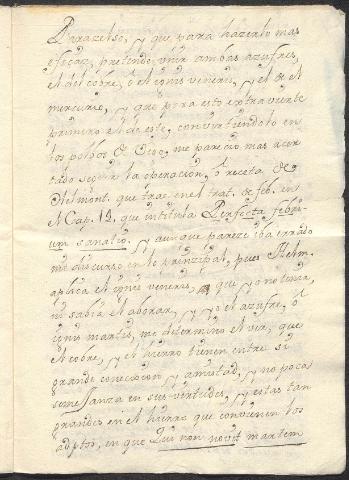 Parazelso, y que para hazerlo mas
eficaz, pretende vnir ambas azufres,
el del cobre, ô el ignis veneris, y el de el
mercurio, y que para esto extra vierte
primero el de este, convirtiendolo en
los polvos de Oro, me pareció mas acer
tado seguir la operacion, ô receta de
Helmont. que trae en el trat. de feb. en
el Cap. 13, que intitula Perfecta febri-
um sanatio, y aunque pareze iba errado
mi discurso en lo prinzipal, pues Helm.
aplica el ignis veneris, que yo no tenia,
ni sabia elaborar, y yo el azufre, ô
ignis martis, me determino el ver, que
el cobre, y el hierro tienen entre si
grande conecion y amistad, y no poca
semejanza en sus virtudes, y estas tan
grandes en el hierro que convienen los
adeptos, en que Qui non novit martem